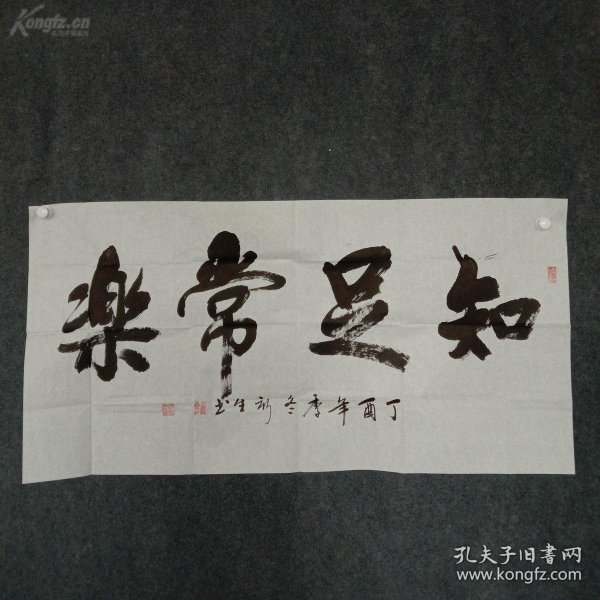 知足常樂
丁酉年季冬新生书
Kongfz.cn
孔夫子旧书网
www.kongfz.com